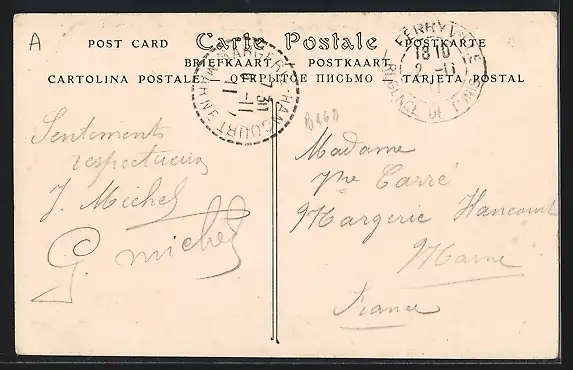 A
POST CARD Carte Postale POSTKARTE
BRIEFKAART POSTKAART
CARTOLINA POSTALE ОТКРЫТОЕ ПИСЬМО TARJETA POSTAL
MARGERIE-HANCOURT
MARNE
7 30
FERRYVILLE
18 10
RÉGENCE DE
B468
Sentiments
respectueux
J. Michel
G. Michel
Madame
Carré
Margerie Hancourt
Marne
France